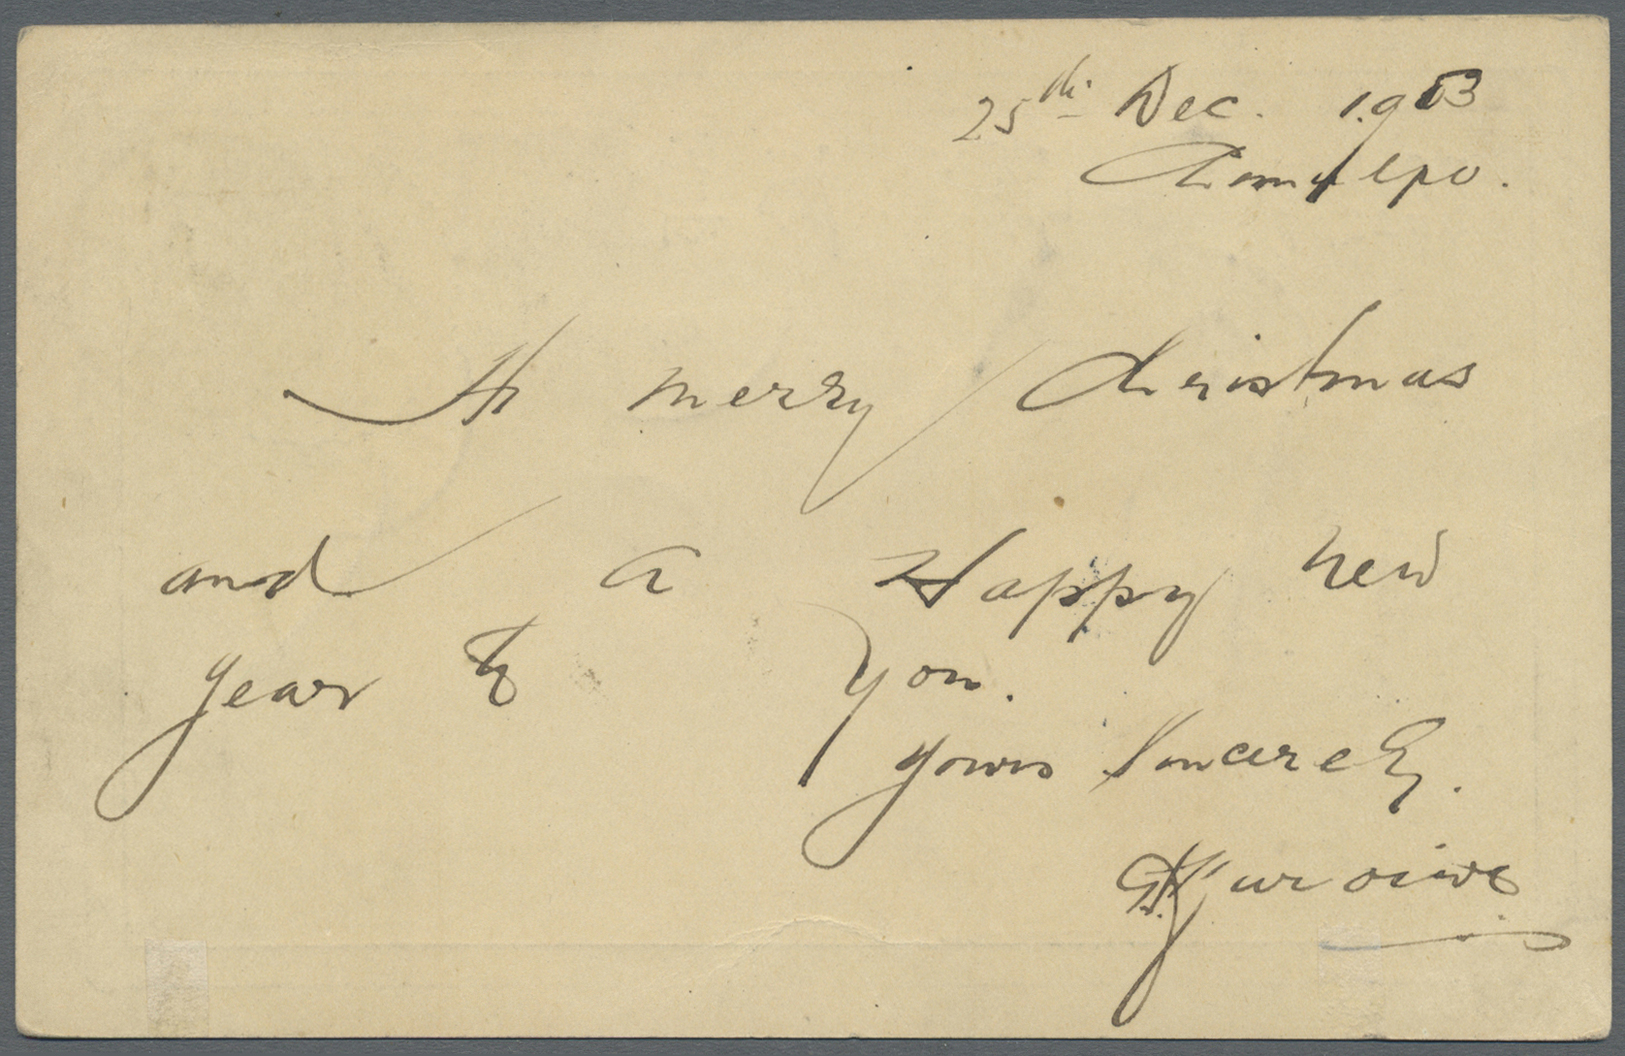 25th Dec. 1903
Chomulpo.
A merry Christmas
and a Happy new
year to you.
Yours Sincerely.